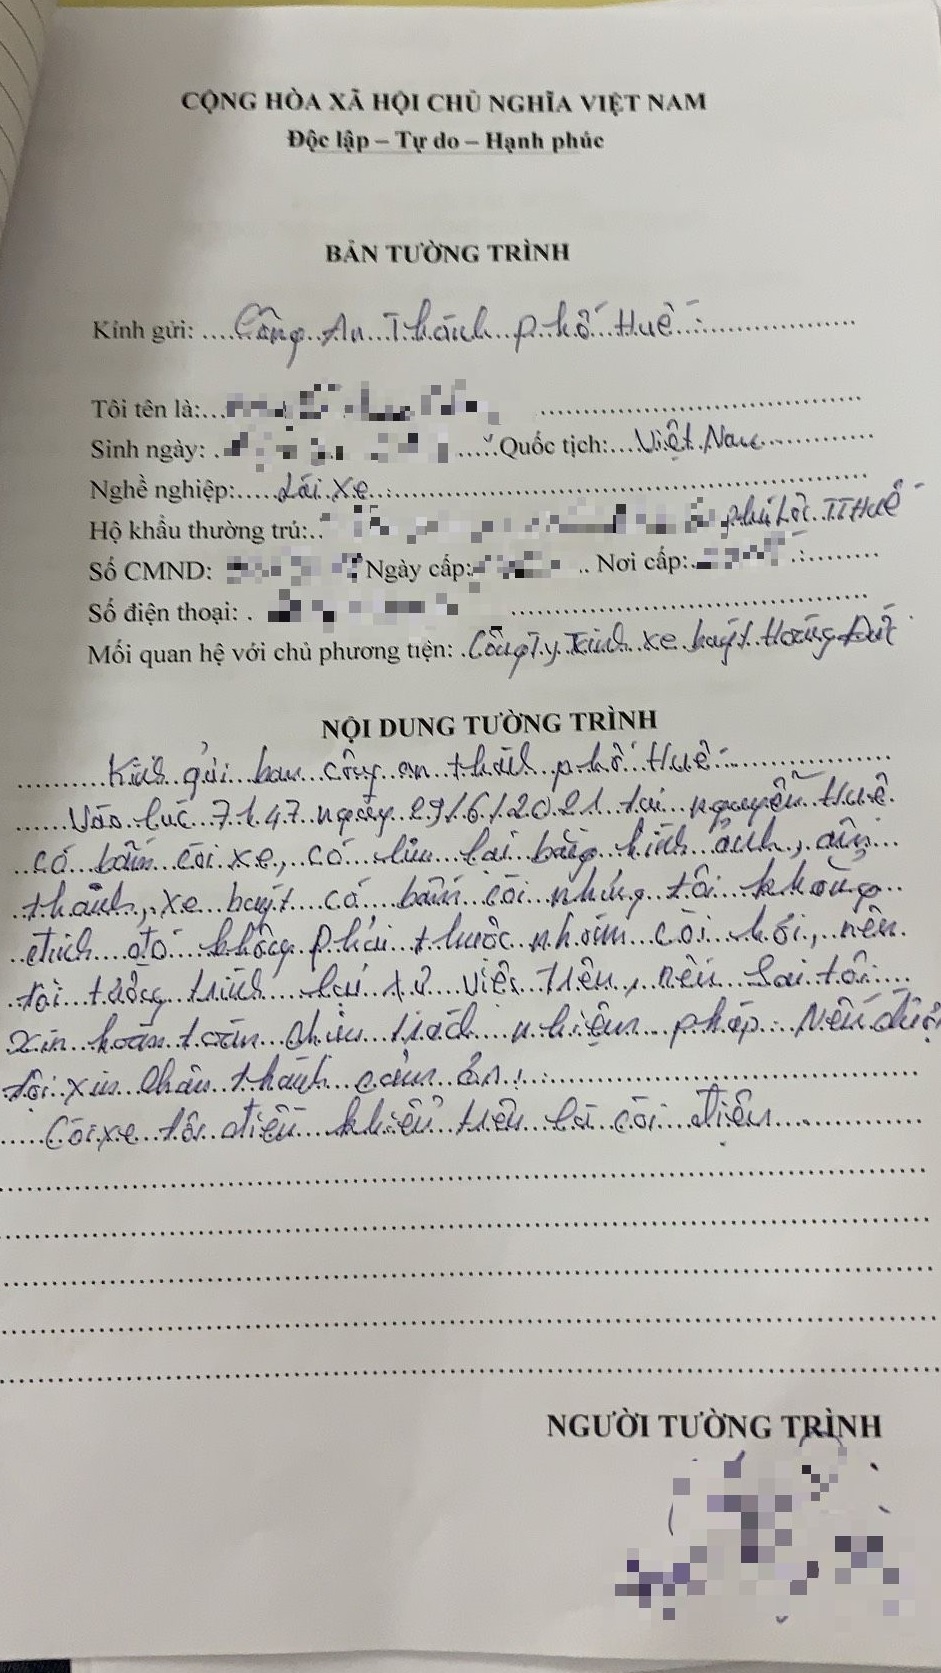 CỘNG HÒA XÃ HỘI CHỦ NGHĨA VIỆT NAM
Độc lập – Tự do – Hạnh phúc
BẢN TƯỜNG TRÌNH
Kính gửi: Công An Thành phố Huế
Tôi tên là:
Sinh ngày: Quốc tịch: Việt Nam
Nghề nghiệp: Lái xe
Hộ khẩu thường trú: phú Lộc TT Huế
Số CMND: Ngày cấp: Nơi cấp:
Số điện thoại:
Mối quan hệ với chủ phương tiện: Công Ty xe buýt Hoàng Đức
NỘI DUNG TƯỜNG TRÌNH
Kính gửi ban công an thành phố Huế
Vào lúc 7h47 ngày 29/6/2021 tại nguyễn Huệ
có bấm còi xe, có lưu lại bằng hình ảnh, âm
thanh, xe buýt có bấm còi nhưng tôi không
ôtô không phải thuộc nhóm còi hơi, nên
tôi tường trình lại sự việc trên, nếu sai tôi
xin hoàn toàn chịu trách nhiệm pháp. Nếu
tôi xin chân thành cảm ơn!
Còi xe tôi điều khiển trên là còi điện
NGƯỜI TƯỜNG TRÌNH